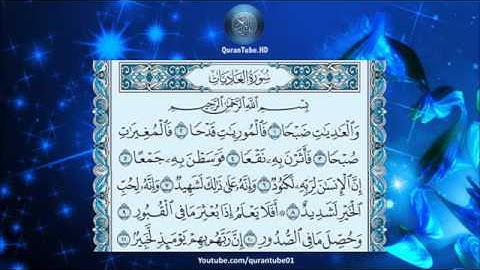 QuranTube.HD
سُورَةُ العَادِيَاتِ
بِسْمِ اللَّهِ الرَّحْمَٰنِ الرَّحِيمِ
وَالْعَادِيَاتِ ضَبْحًا ١ فَالْمُورِيَاتِ قَدْحًا ٢ فَالْمُغِيرَاتِ
صُبْحًا ٣ فَأَثَرْنَ بِهِ نَقْعًا ٤ فَوَسَطْنَ بِهِ جَمْعًا ٥
إِنَّ الْإِنسَانَ لِرَبِّهِ لَكَنُودٌ ٦ وَإِنَّهُ عَلَىٰ ذَٰلِكَ لَشَهِيدٌ ٧ وَإِنَّهُ لِحُبِّ
الْخَيْرِ لَشَدِيدٌ ٨ أَفَلَا يَعْلَمُ إِذَا بُعْثِرَ مَا فِي الْقُبُورِ ٩
وَحُصِّلَ مَا فِي الصُّدُورِ ١٠ إِنَّ رَبَّهُم بِهِمْ يَوْمَئِذٍ لَّخَبِيرٌ ١١
Youtube.com/qurantube01